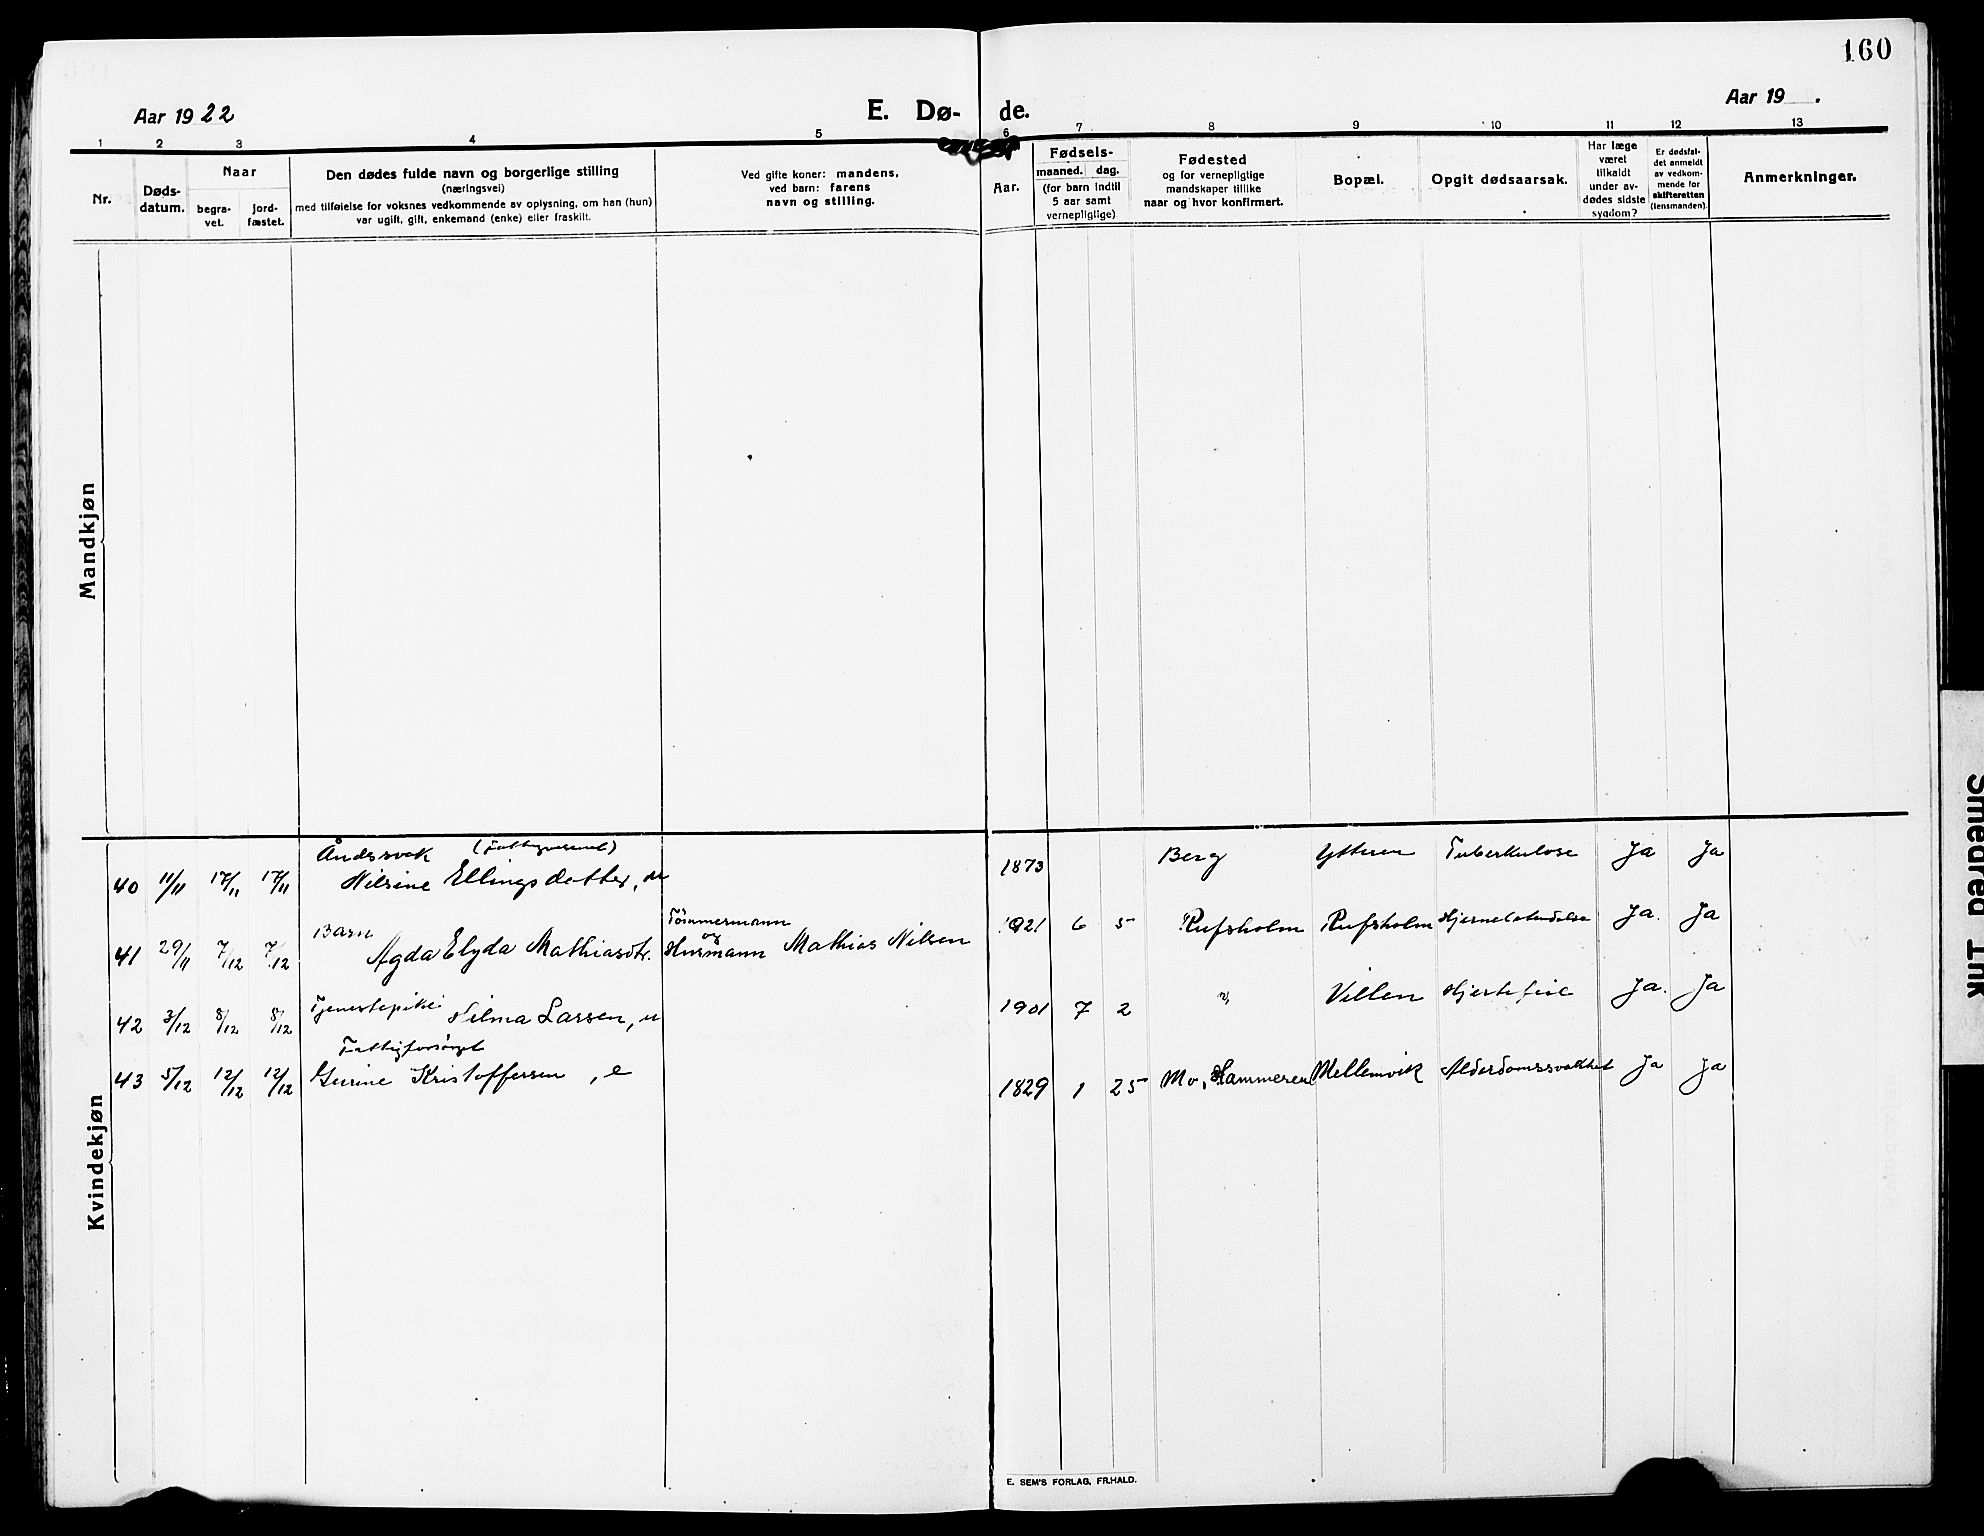 160
Aar 1922
E. Dø- de.
Aar 19 .
1 2 3 4 5 6 7 8 9 10 11 12 13
Nr.
Døds-
datum.
Naar
begra-
vet.
jord-
fæstet.
Den dødes fulde navn og borgerlige stilling
(næringsvei)
med tilføielse for voksnes vedkommende av oplysning, om han (hun)
var ugift, gift, enkemand (enke) eller fraskilt.
Ved gifte koner: mandens,
ved barn: farens
navn og stilling.
Aar.
Fødsels-
maaned. dag.
(for barn indtil
5 aar samt
vernepligtige)
Fødested
og for vernepligtige
mandskaper tillike
naar og hvor konfirmert.
Bopæl.
Opgit dødsaarsak.
Har læge
været
tilkaldt
under av-
dødes sidste
sygdom?
Er dødsfal-
det anmeldt
av vedkom-
mende for
skifteretten
(lensmanden).
Anmerkninger.
Mandkjøn
Kvindekjøn
Åndssvak
40 11/11 17/11 17/11 Nilsine Ellingsdatter, u 1873 Berg Ytteren Tuberkulose Ja Ja
Barn Tömmermann
og
41 29/11 7/12 7/12 Agda Elyda Mathiasdtr. Husmann Mathias Nilsen 1921 6 5 Rufsholm Rufsholm Hjernebetendelse Ja. Ja
42 3/12 8/12 8/12 Tjenestepike Nilma Larsen, u 1901 7 2 " Villen Hjertefeil Ja. Ja
Fattigforsörget
43 5/12 12/12 12/12 Gurine Kristoffersen, e 1829 1 25 Mo, Hammeren Mellemvik Alderdomssvakhet Ja Ja
E. SEM'S FORLAG, FR.HALD.
Smeared Ink